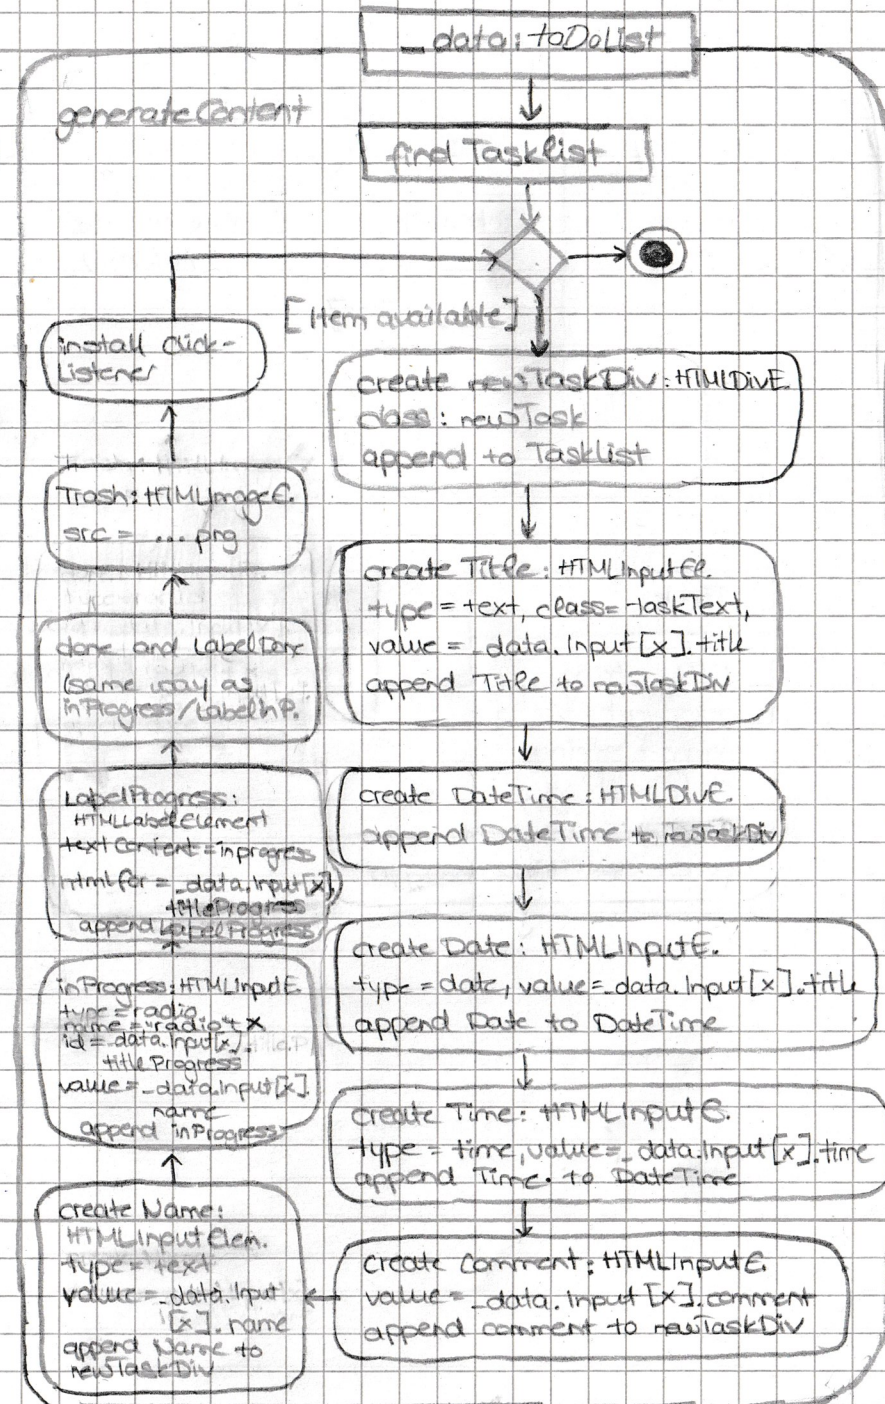 _data: toDoList
generateContent
find Tasklist
[Item available]
create newTaskDiv: HTMLDivE.
class: newTask
append to Tasklist
create Title: HTMLInputEl.
type = text, class= taskText,
value = _data.Input[x].title
append Title to newTaskDiv
create DateTime: HTMLDivE.
append DateTime to newTaskDiv
create Date: HTMLInputE.
type = date, value=_data.Input[x].title
append Date to DateTime
create Time: HTMLInputE.
type = time, value=_data.Input[x].time
append Time. to DateTime
create Comment: HTMLInputE.
value = _data.Input[x].comment
append comment to newTaskDiv
create Name:
HTMLInputElem.
type = text
value = _data.Input
[x].name
append Name to
newTaskDiv
inProgress: HTMLInputE.
type = radio
name = "radio" + x
id = _data.Input[x].
titleProgress
value = _data.Input[x].
name
append inProgress
LabelProgress:
HTMLLabelElement
textContent = inprogress
htmlfor = _data.Input[x].
titleProgress
append LabelProgress
done and LabelDone
(same way as
inProgress/LabelInP.
Trash: HTMLImageE.
src = ... png
install Click-
Listener